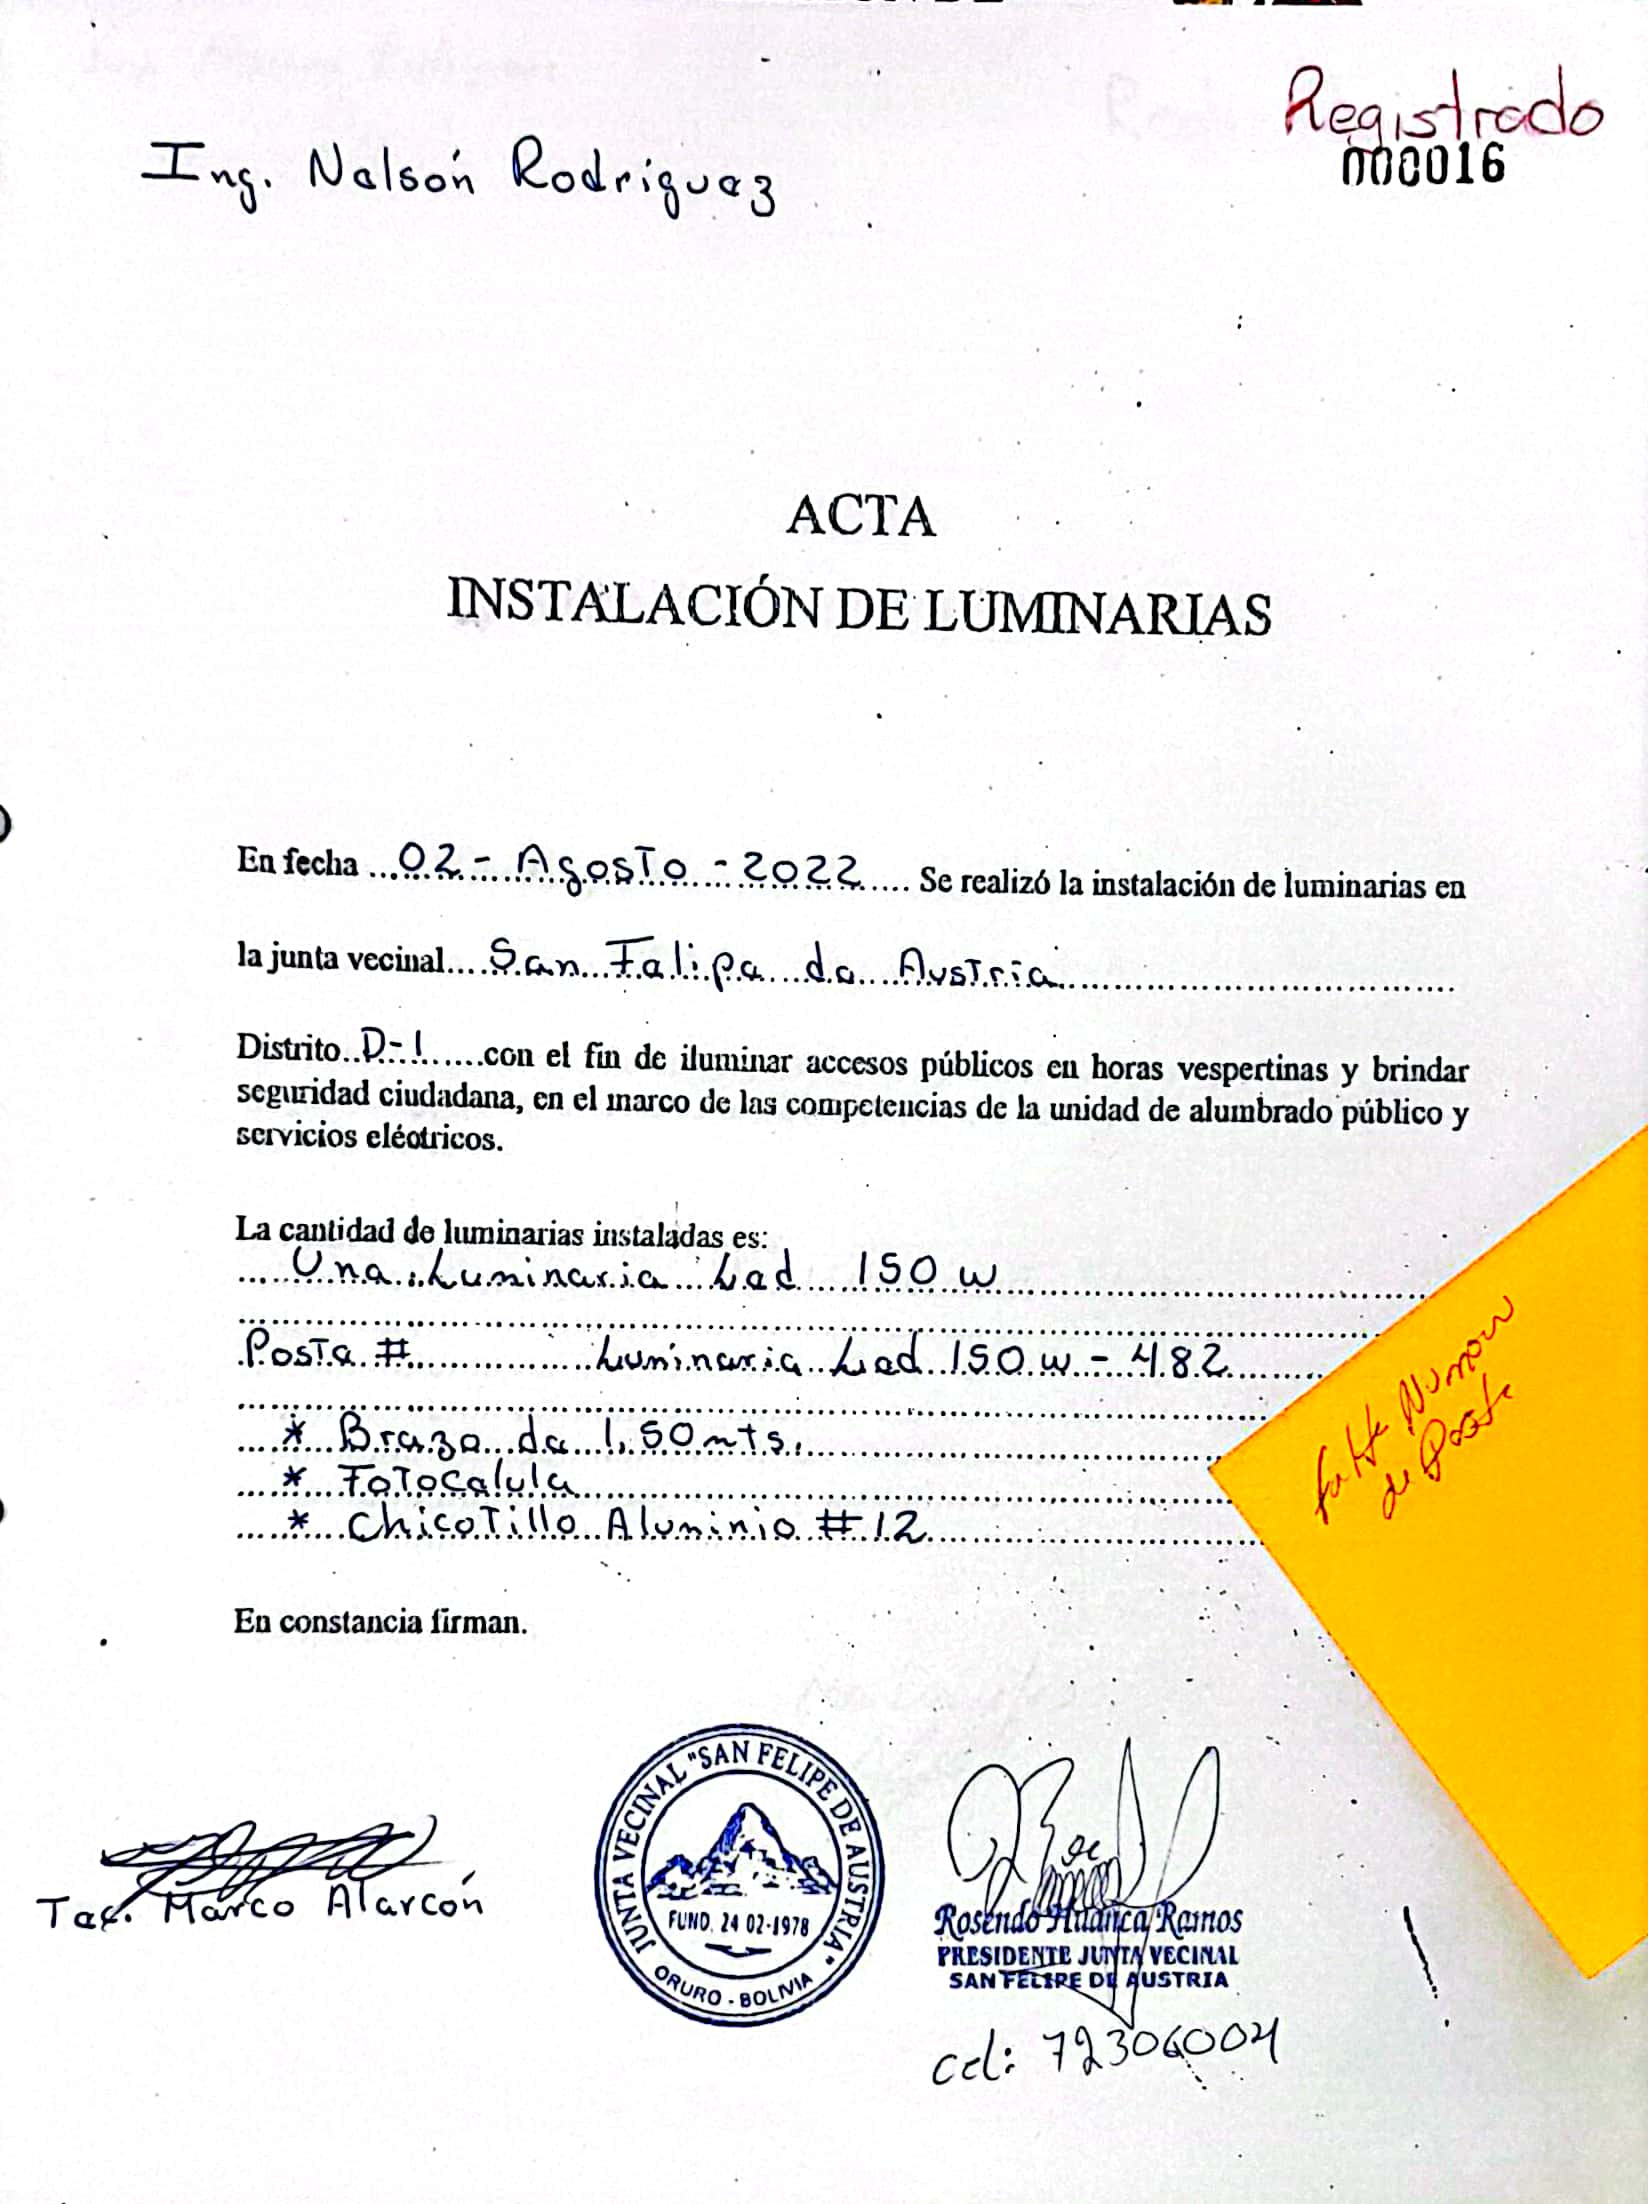 Registrado
000016
Ing. Nelson Rodriguez
ACTA
INSTALACIÓN DE LUMINARIAS
En fecha ...02 - Agosto - 2022..... Se realizó la instalación de luminarias en
la junta vecinal....San Felipe de Austria..............................
Distrito..D-1......con el fin de iluminar accesos públicos en horas vespertinas y brindar
seguridad ciudadana, en el marco de las competencias de la unidad de alumbrado público y
servicios eléctricos.
La cantidad de luminarias instaladas es:
Una Luminaria Led 150 w
Poste # Luminaria Led 150 w - 482
* Brazo de 1,50 mts.
* Fotocelula
* Chicotillo Aluminio # 12
Falta Numero
de Poste
En constancia firman.
Tec. Marco Alarcón
JUNTA VECINAL "SAN FELIPE DE AUSTRIA"
FUND. 24 02-1978
ORURO - BOLIVIA
Rosendo Huanca Ramos
PRESIDENTE JUNTA VECINAL
SAN FELIPE DE AUSTRIA
cel: 72306004